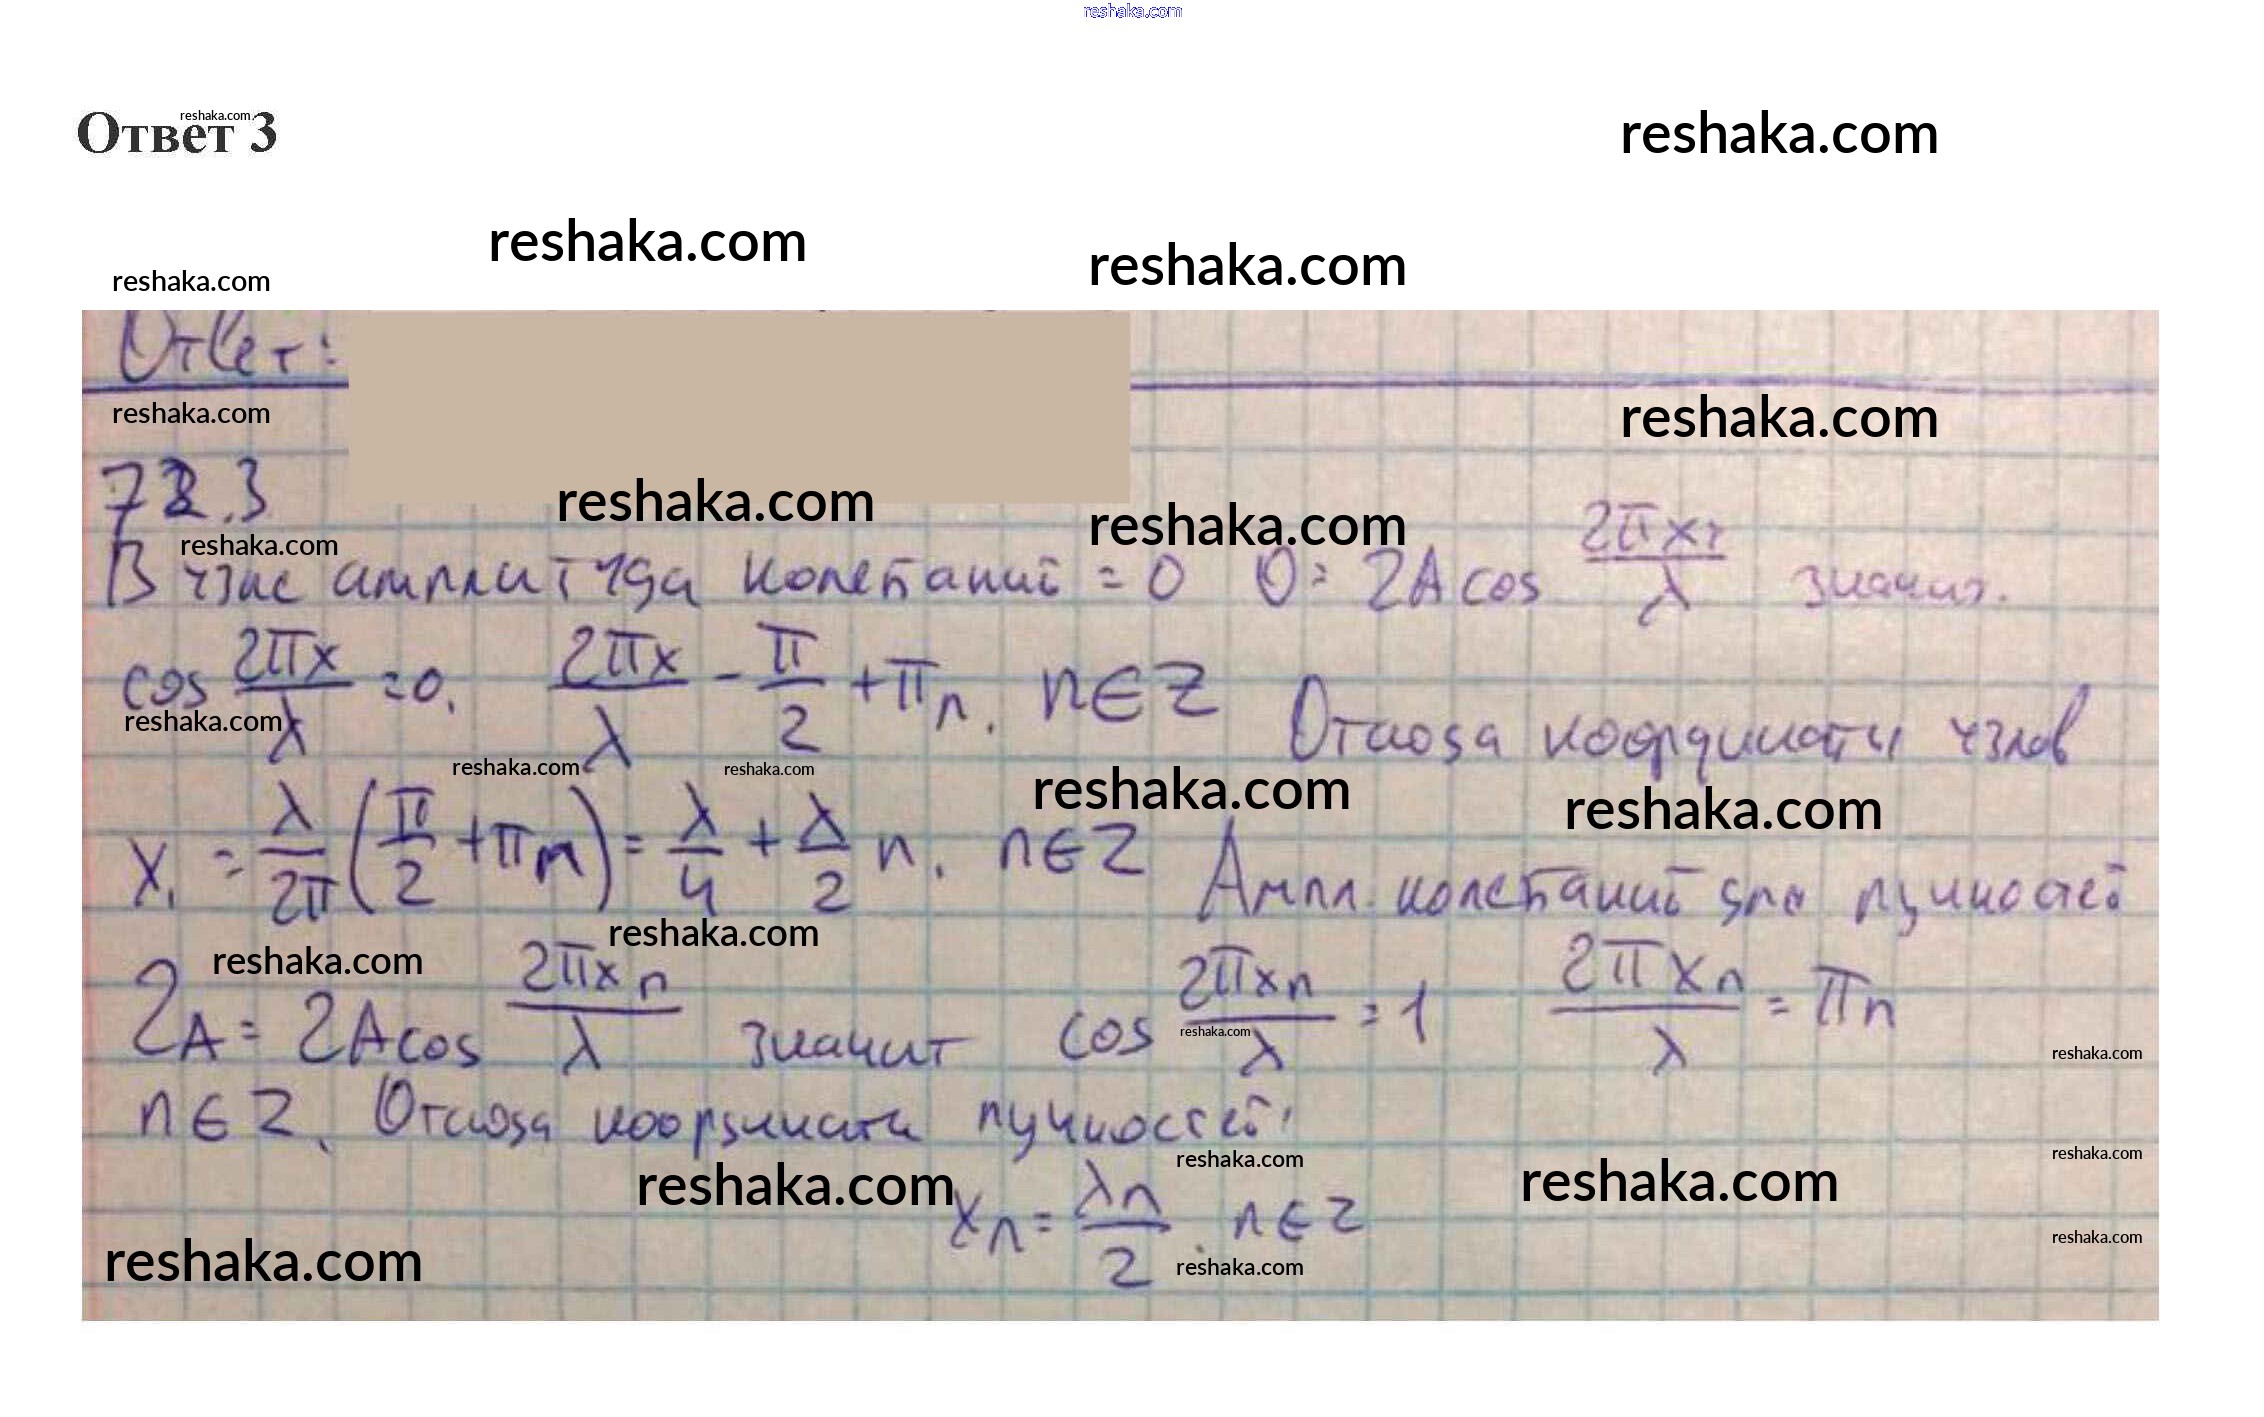 reshaka.com
Ответ 3
reshaka.com
reshaka.com
reshaka.com
reshaka.com
reshaka.com
Ответ:
reshaka.com
reshaka.com
72.3
reshaka.com
reshaka.com
reshaka.com
В узле амплитуда колебаний = 0 0 = 2A cos 2πx₁/λ значит.
cos 2πx/λ = 0. 2πx/λ - π/2 + πn. n∈Z Отсюда координаты узлов
reshaka.com
reshaka.com
reshaka.com
reshaka.com
reshaka.com
x₁ = λ/2π (π/2 + πn) = λ/4 + λ/2 n. n∈Z Ампл. колебаний для пучностей
reshaka.com
reshaka.com
2A = 2A cos 2πxₙ/λ значит cos 2πxₙ/λ = 1 2πxₙ/λ = πn
reshaka.com
reshaka.com
n∈Z. Отсюда координата пучностей:
reshaka.com
reshaka.com
reshaka.com
reshaka.com
xₙ = λn/2. n∈Z
reshaka.com
reshaka.com
reshaka.com